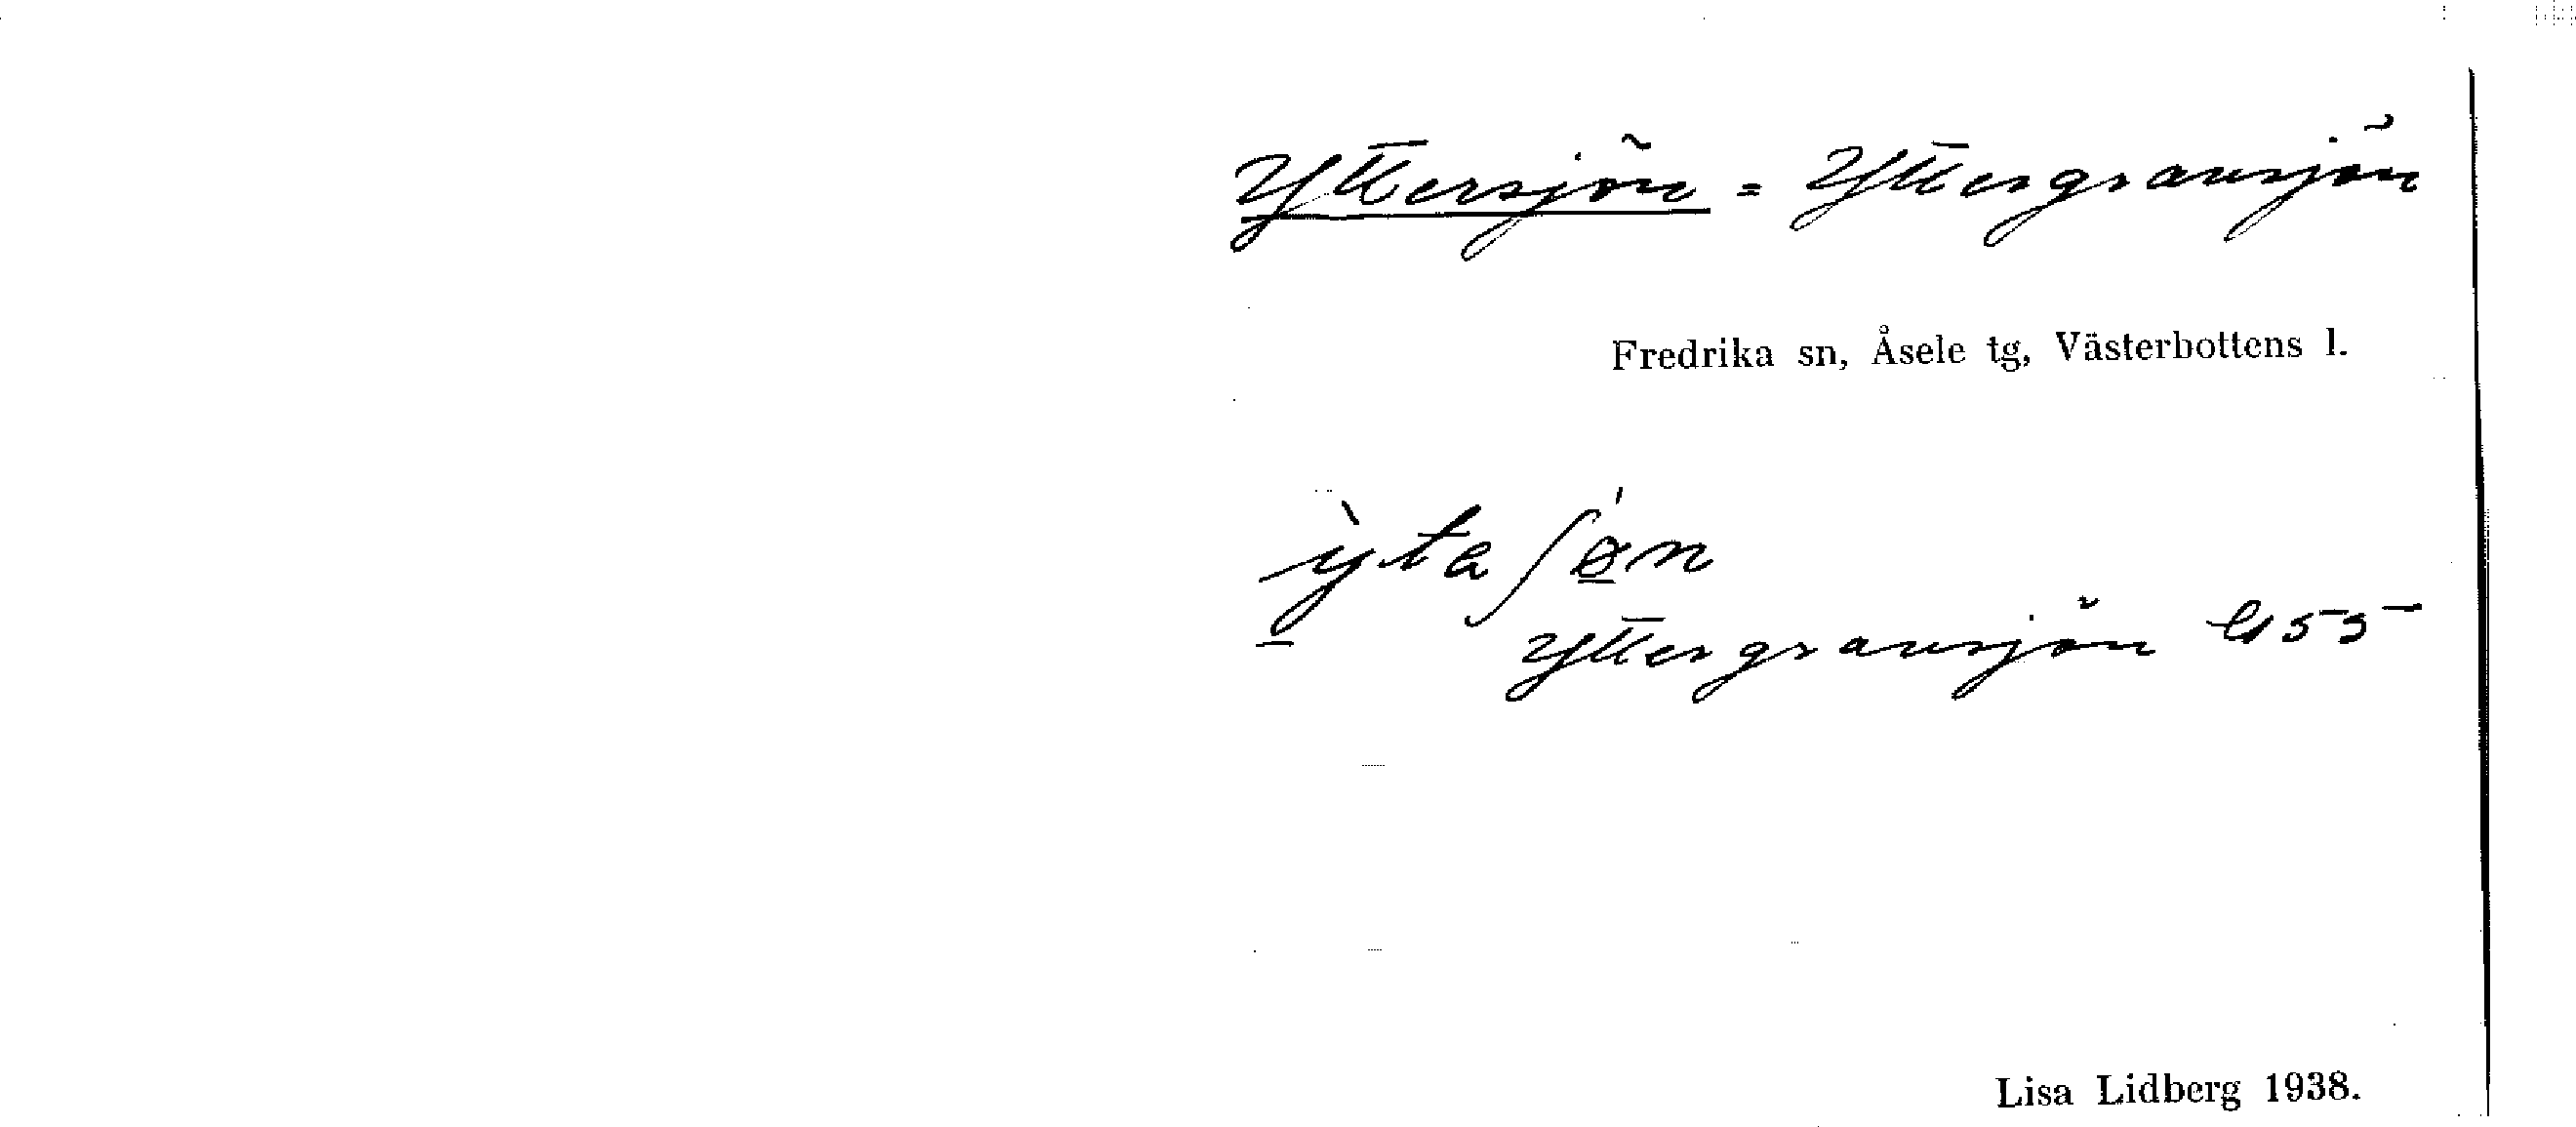 Yttersjön = Yttergransjön
Fredrika sn, Åsele tg, Västerbottens l.
ỳta∫ǿ̲n
Yttergransjön 55
Lisa Lidberg 1938.